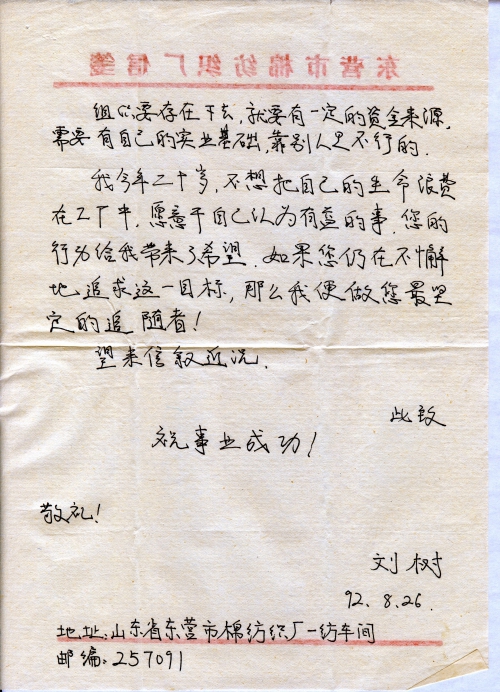 东营市棉纺织厂信笺
组织要存在下去，就要有一定的资金来源，
需要有自己的实业基础，靠别人是不行的．
我今年二十多，不想把自己的生命浪费
在工厂中，愿意干自己认为有益的事．您的
行为给我带来了希望．如果您仍在不懈
地追求这一目标，那么我便做您最坚
定的追随者！
望来信叙近况．
此致
祝事业成功！
敬礼！
刘树
92.8.26.
地址：山东省东营市棉纺织厂一纺车间
邮编：257091